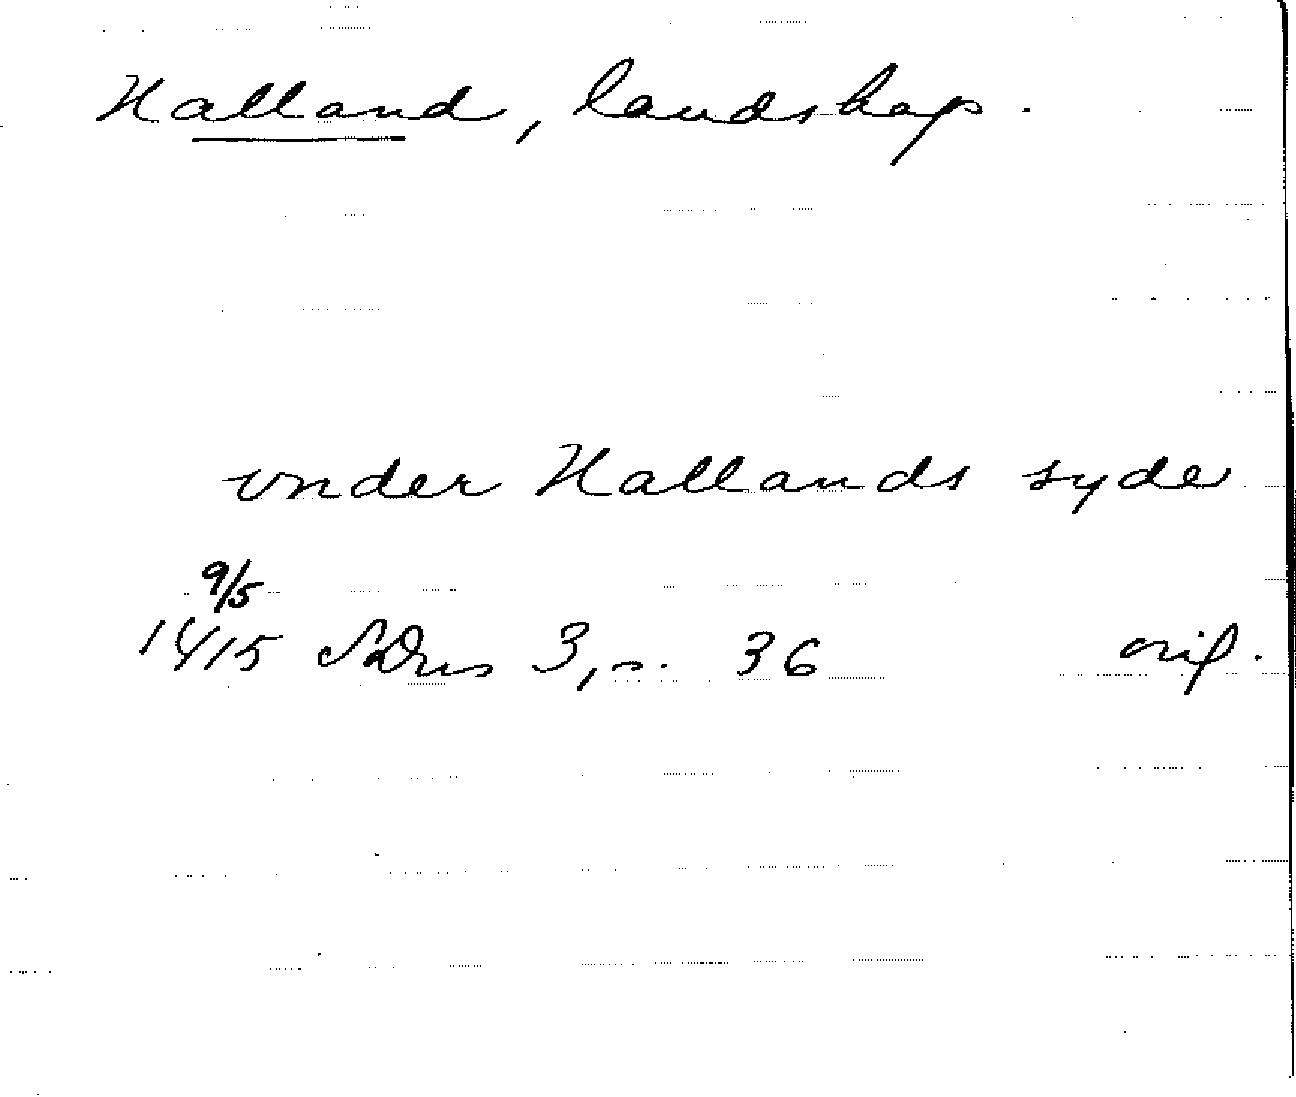 Halland, landskap.
vnder Hallands syde
9/5
1415 SDns 3, s. 36 orig.